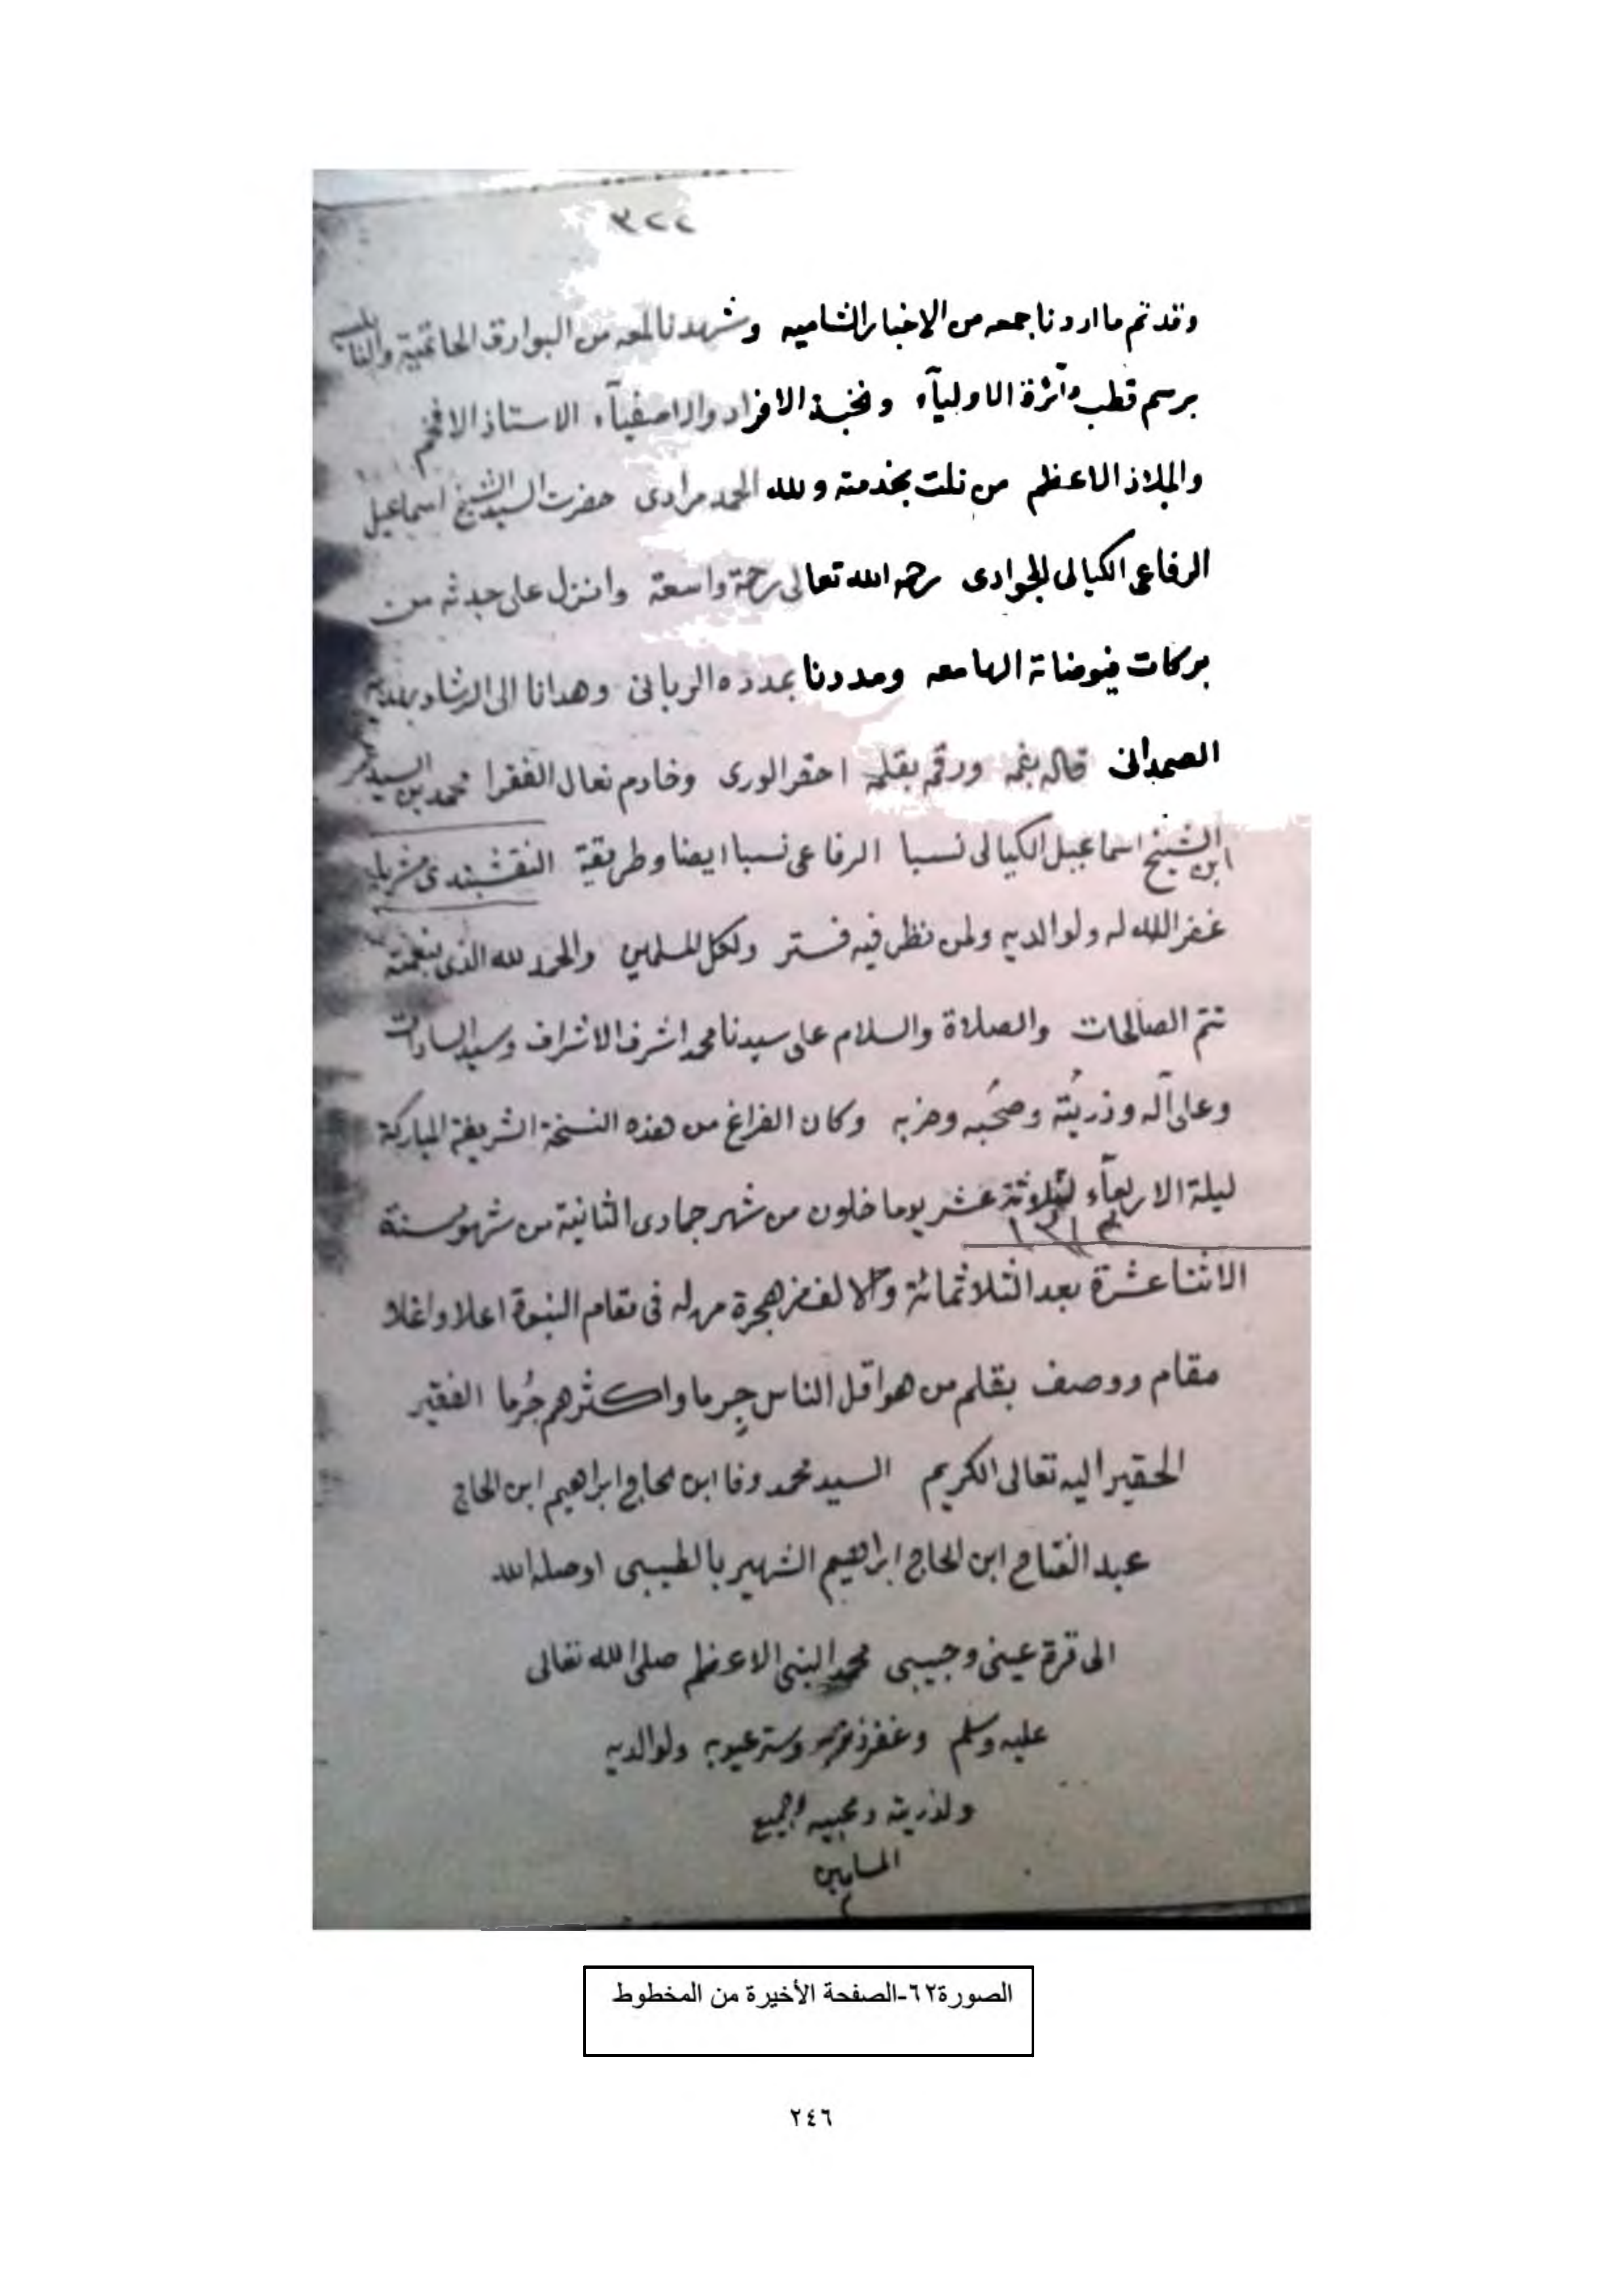 ٢٢٣
وقد تم ما اردنا جمعه من الاخبار الشاميه وشهدنا لمعه من البوارق الحاتمية
برسم قطب دآئرة الاوليآء ونخبة الافراد والاصفيآء الاستاذ الافخم
والملاذ الاعظم من نلت بخدمته ولله الحمد مرادى حضرت السيد الشيخ اسماعيل
الرفاعى الكيالى الجوادى رحمه الله تعالى رحمة واسعة وانزل على جدثه من
بركات فيوضاتة الهامعه ومددنا بمدده الربانى وهدانا الى الرشاد بهديه
الصمدانى قاله بفمه ورقمه بقلمه احقر الورى وخادم نعال الفقرا محمد بن السيد
ابن الشيخ اسماعيل الكيالى نسبا الرفاعى نسبا ايضا وطريقة النقشبندى مشربا
غفر الله له ولوالديه ولمن نظر فيه فستر ولكل المسلمين والحمد لله الذى بنعمته
تتم الصالحات والصلاة والسلام على سيدنا محمد اشرف الاشراف وسيد السادات
وعلى آله وذريته وصحبه وحزبه وكان الفراغ من هذه النسخة الشريفة المباركة
ليلة الاربعآء لثلاثة عشر يوما خلون من شهر جمادى الثانية من شهور سنة
١٣١٢
الاثنا عشرة بعد الثلاثمائة والالف من هجرة من له فى مقام النبوة اعلا واغلا
مقام ووصف بقلم من هو اقل الناس جِرما واكثرهم جُرما الفقير
الحقير اليه تعالى الكريم السيد محمد وفا ابن الحاج ابراهيم ابن الحاج
عبد الفتاح ابن الحاج ابراهيم الشهير بالطيبى اوصله الله
الى قرة عينى وحبيبى محمد النبى الاعظم صلى الله تعالى
عليه وسلم وغفر ذنوبه وستر عيوبه ولوالديه
ولذريته ومحبيه ولجميع
المسلمين
م
الصورة٦٢-الصفحة الأخيرة من المخطوط
٢٤٦